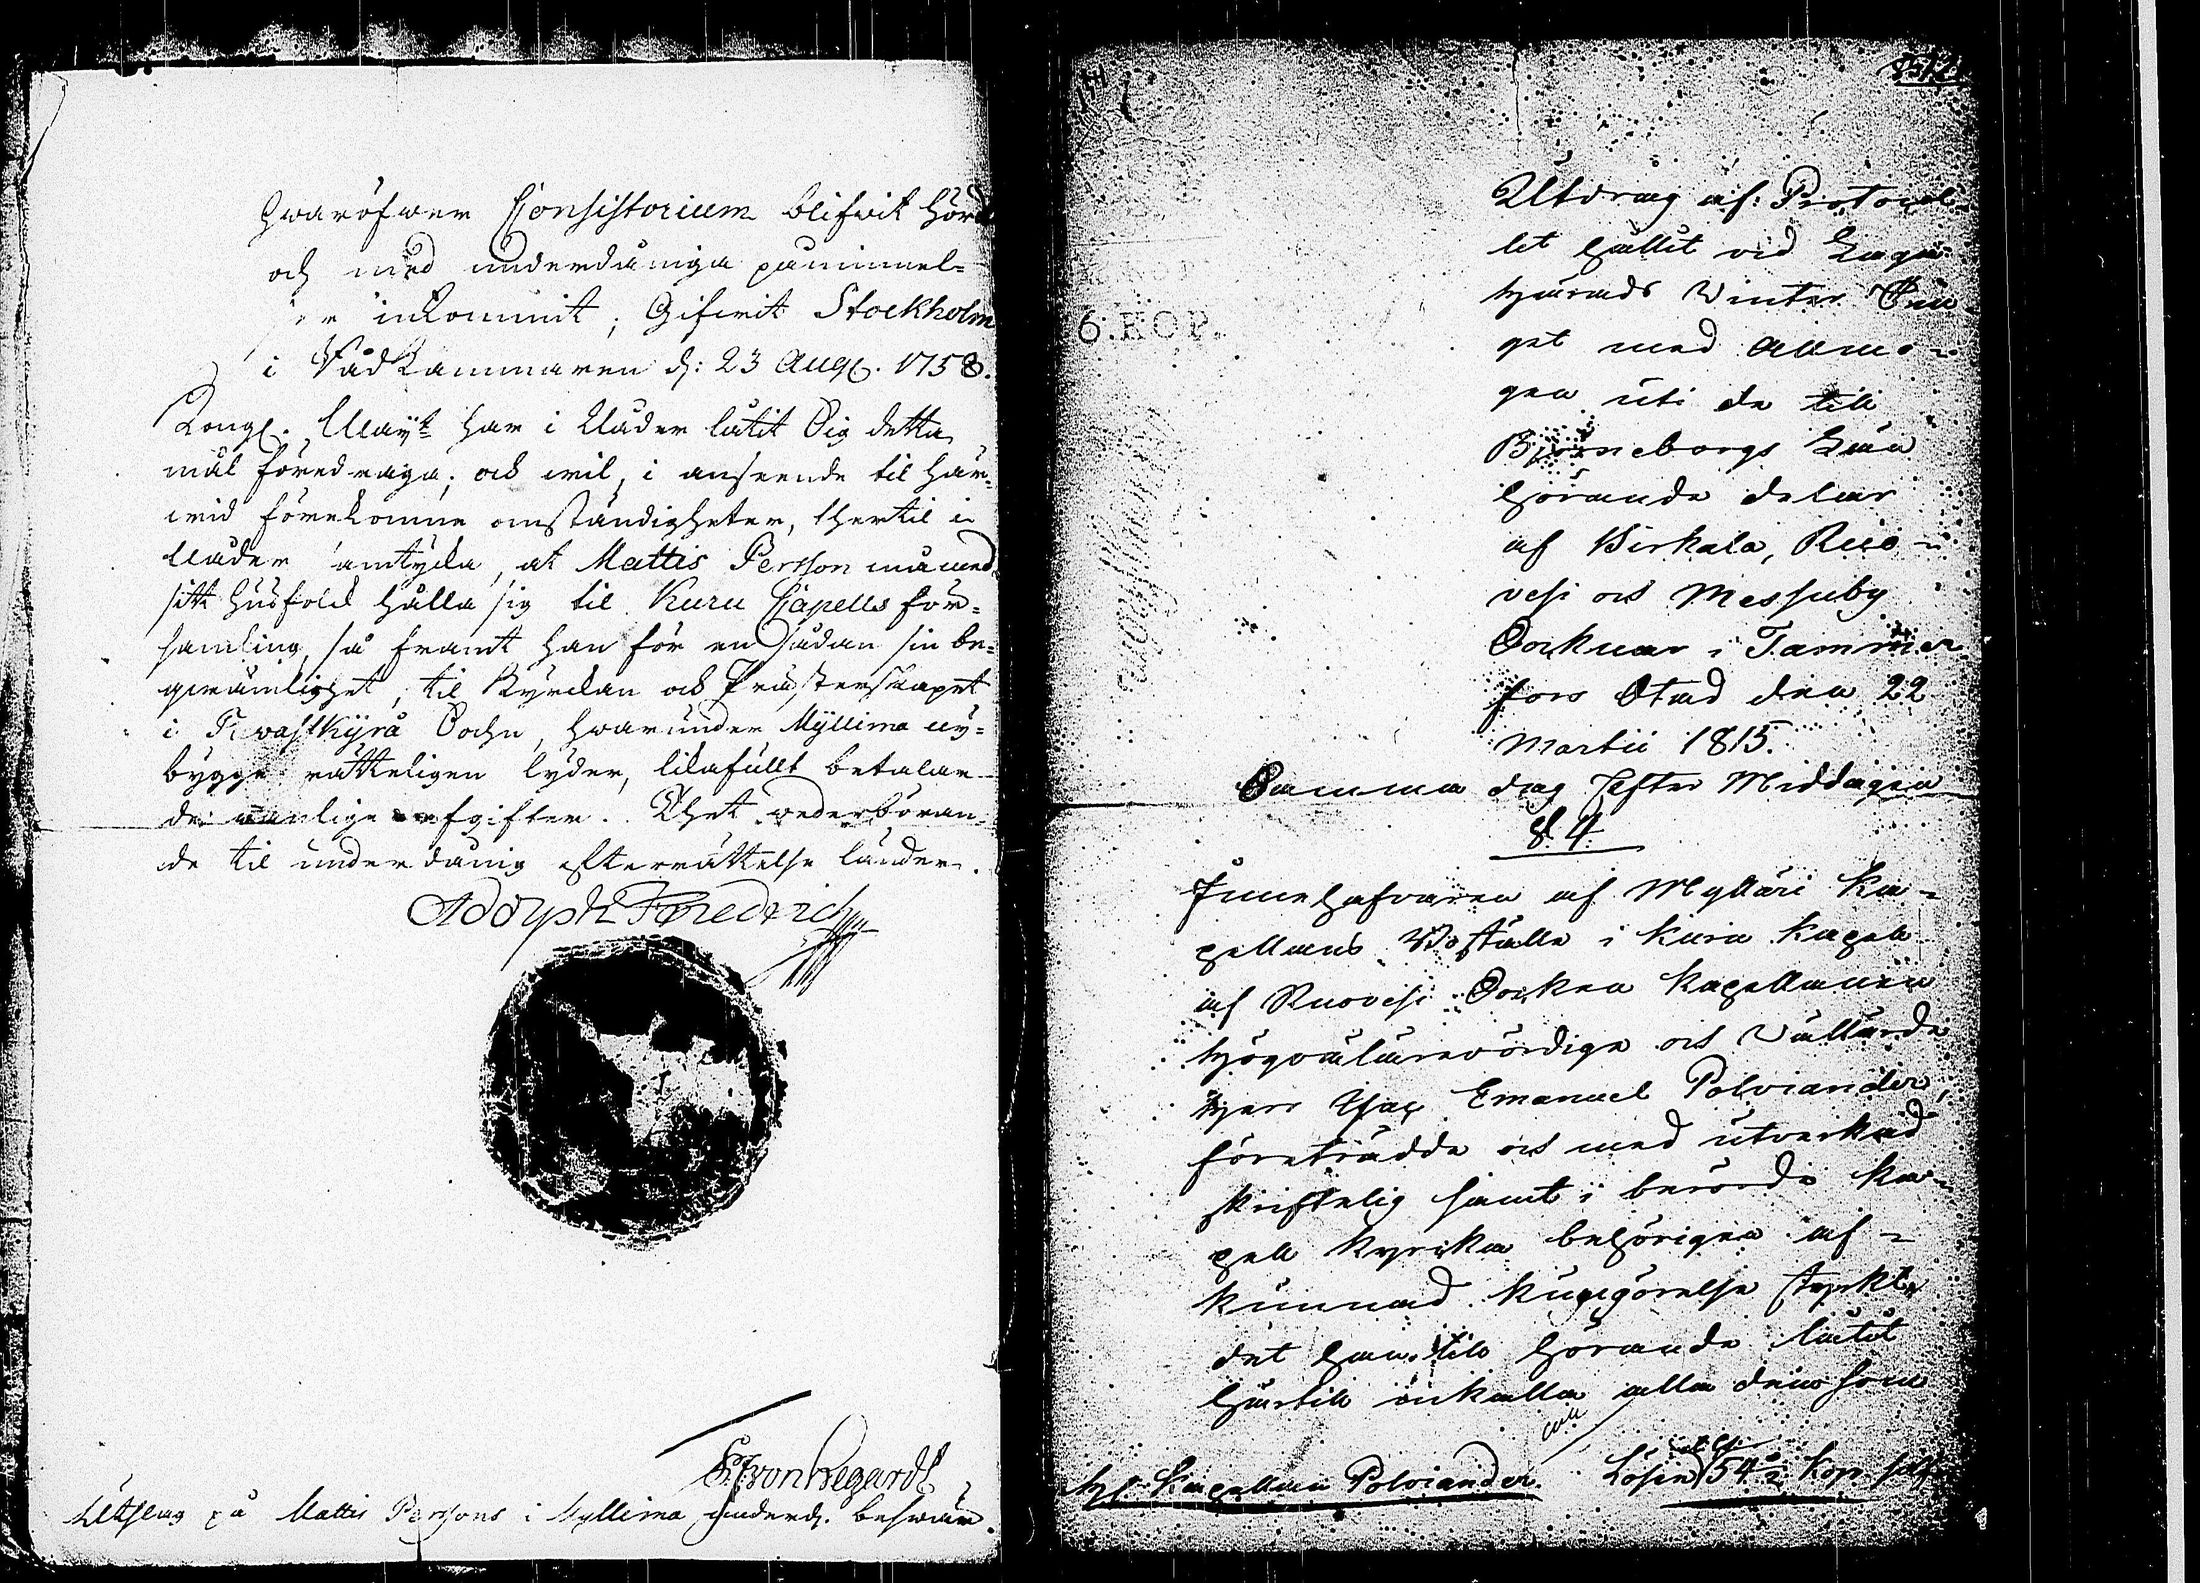 hwaröfwer Consistorium blifwit hördt
och med underdåniga påminnel-
er inkommit; Gifwit Stockholm
i Rådkammaren d: 23 Aug. 1758.
Kongl. Mayt har i Nåder låtit Sig detta
mål föredraga; och wil, i anseende til här-
wid förekomne omständigheter, thertil i
Nåder samtycka, at Mattis Persson må med
sitt husfolck hålla sig til Kuru Capells för-
samling, så framt han för en sådan sin be-
qwämlighet, til Kyrckan och Prästerskapet
i Tavastkyrå Sochn, hwarunder Myllima ny-
bygge rätteligen lyder, likafullt betalar
de wanlige afgifter. Thet wederböran-
de til underdånig efterrättelse länder.
Adolph Friedrich
C. J. von Hegardt
Utslag på Mattis Perssons i Myllima underd. beswär.
6. KOP.
Utdrag af Protocol-
let hållit vid Laga
Härads Vinter Tin
get med Allmo-
gen uti de till
Björneborgs Län
hörande delar
af Birkala, Ruo-
vesi och Messuby
Socknar i Tammer
fors Stad den 22
Martii 1815.
Samma dag Efter Middagen
§. 4.
Innehafvaren af Mylläri Ka-
pellans Boställe i Kuru Kapell
af Ruovesi Socken Kapellanen
Högvälärevördige och Vällärde
Herr Isac Emanuel Polviander,
företrädde och med utverkad
skriftelig samt i berörde Ka-
pell Kyrcka behörigen af-
kunnad Kungörelse styrkte
det han tils hörande låtit
härtill inkalla alla dem som
Hr Kapellan Polviander. Lösen 54 1/2 kop. silf